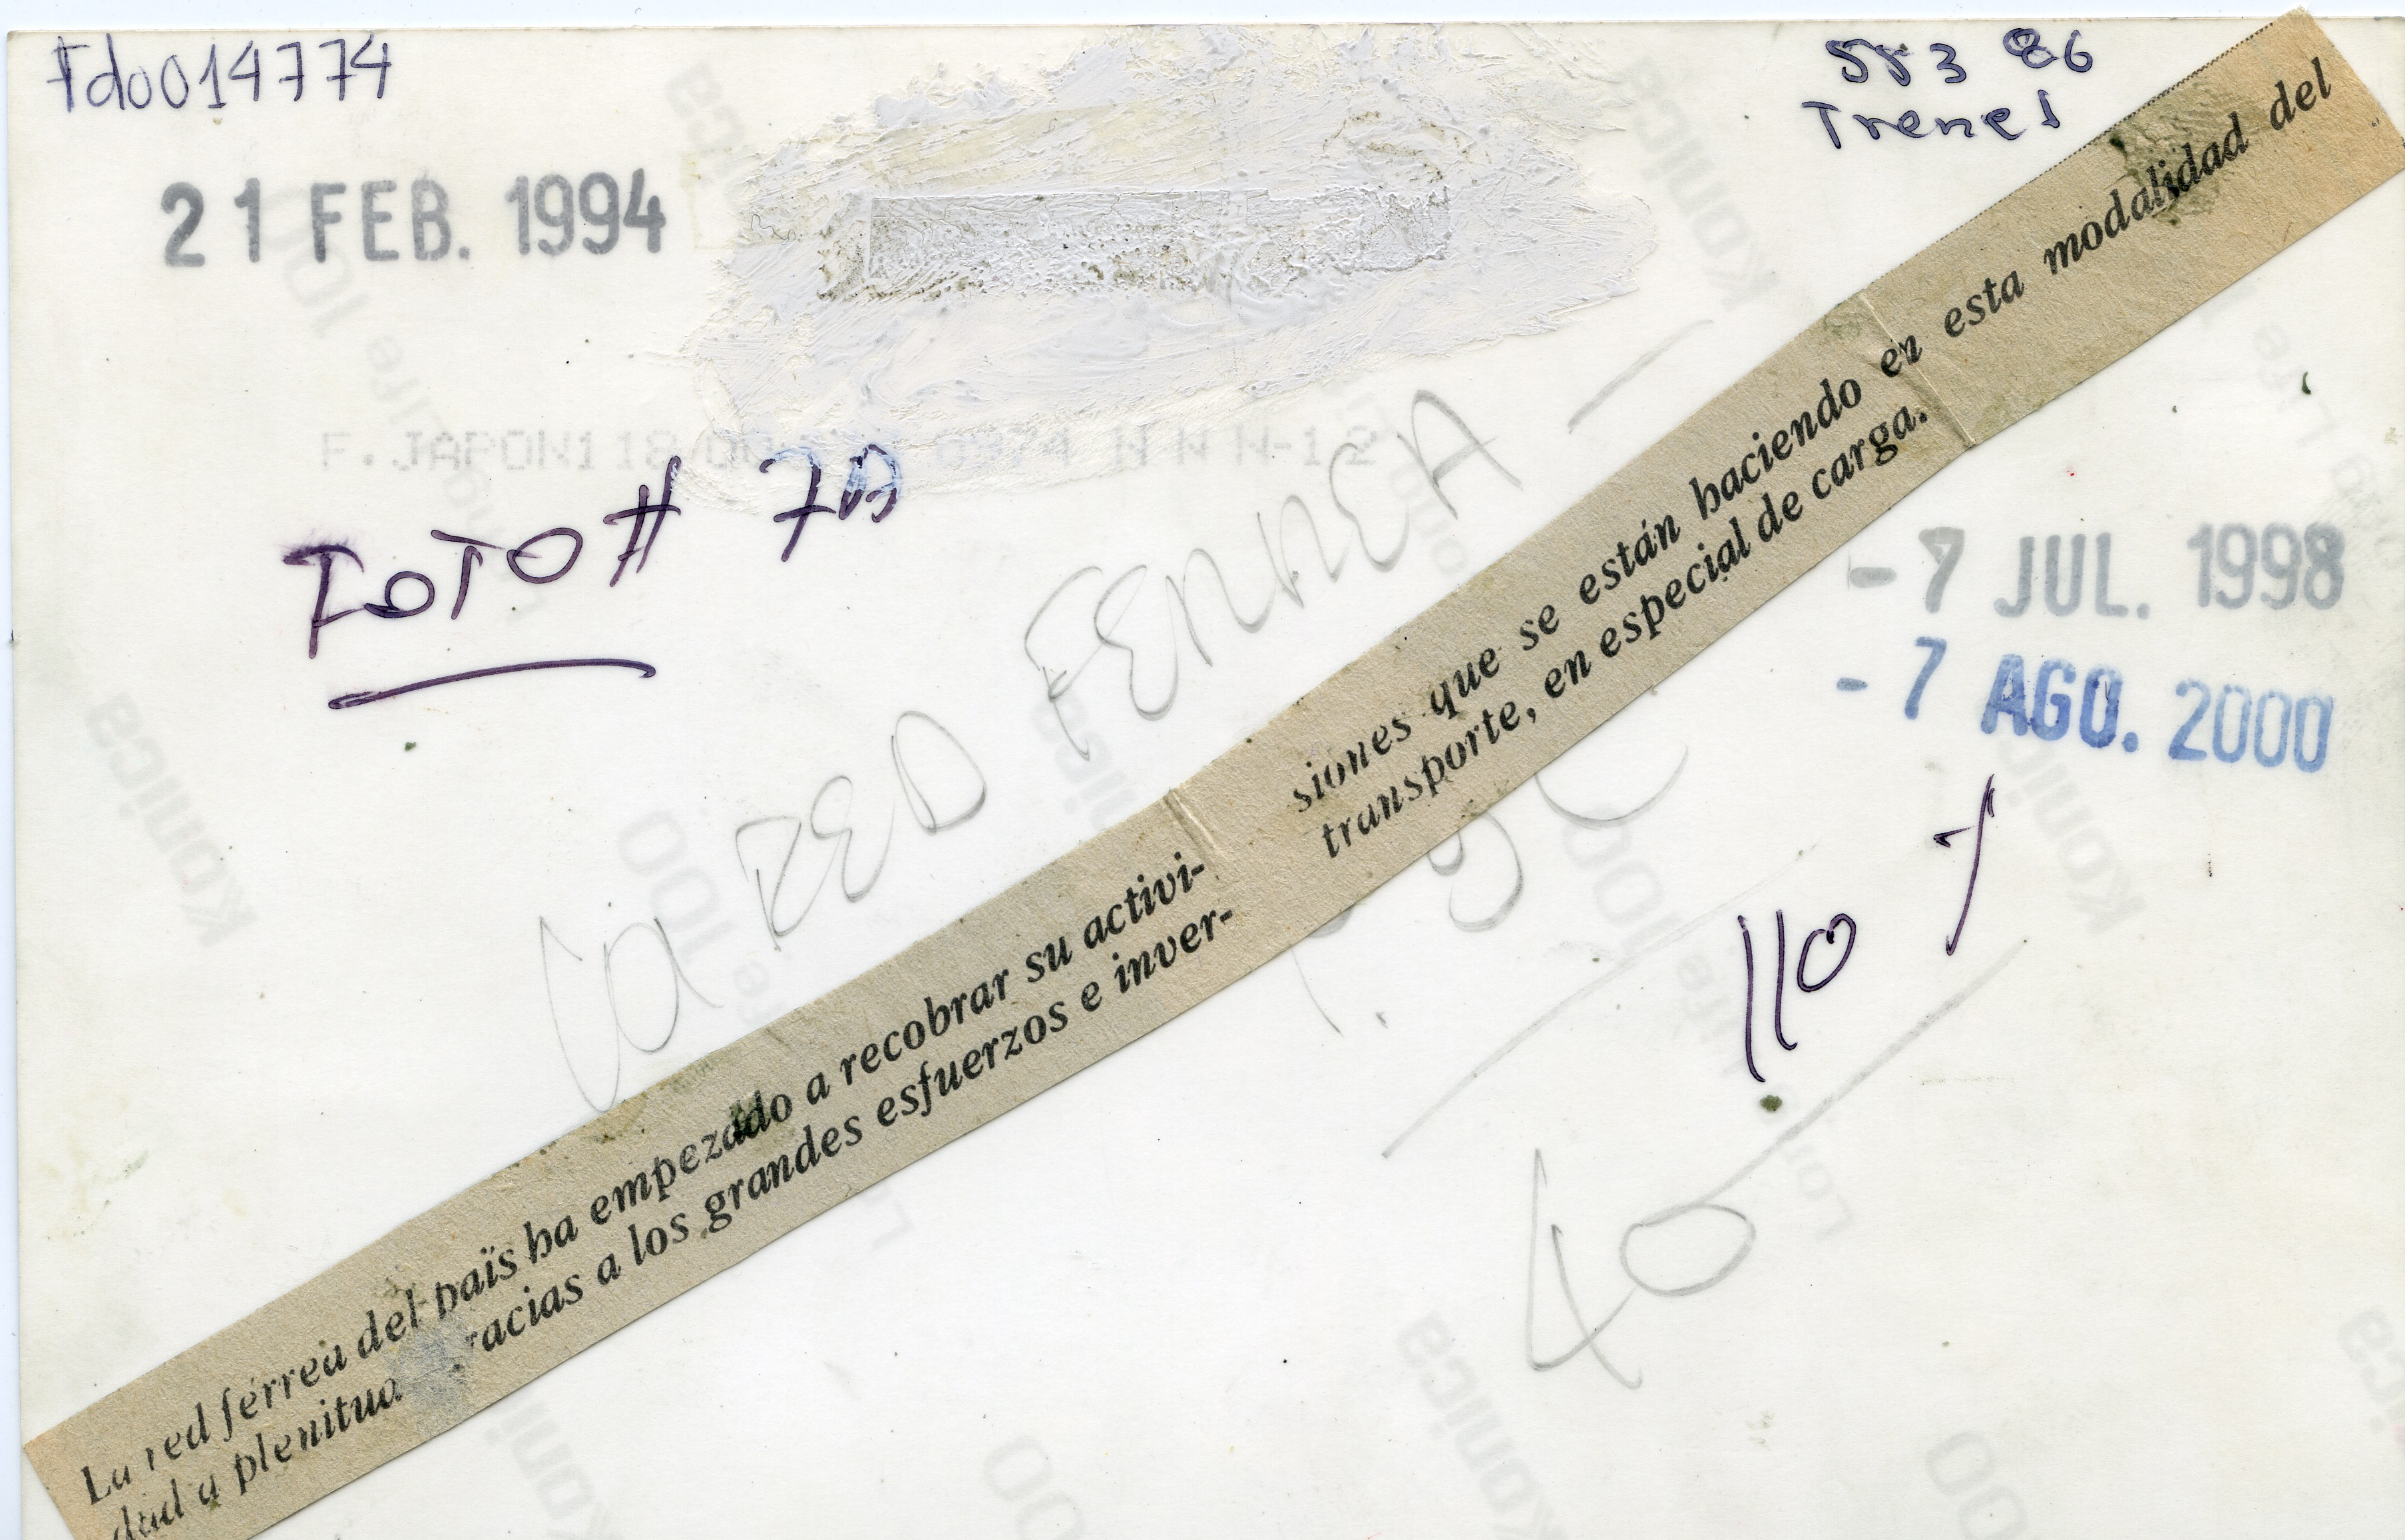 Fdo014774
553 86
Trenes
21 FEB. 1994
F.JAPON118
N N N-12
FOTO # 7A
LA RED FERREA -
- 7 JUL. 1998
- 7 AGO. 2000
La red férrea del país ha empezado a recobrar su activi-
dad a plenitud gracias a los grandes esfuerzos e inver-
siones que se están haciendo en esta modalidad del
transporte, en especial de carga.
110
40
Konica
Konica
Konica
Konica
Konica
Konica